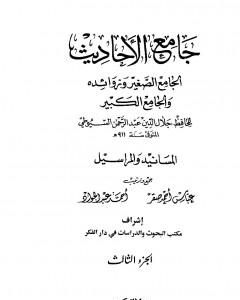 جامع الأحاديث
الجامع الصغير وزوائده
والجامع الكبير
للحافظ جلال الدين عبد الرحمن السيوطي
المتوفى سنة ٩١١ هـ
المسانيد والمراسيل
جمع وترتيب
عباس أحمد صقر أحمد عبد الجواد
إشراف
مكتب البحوث والدراسات في دار الفكر
الجزء الثالث